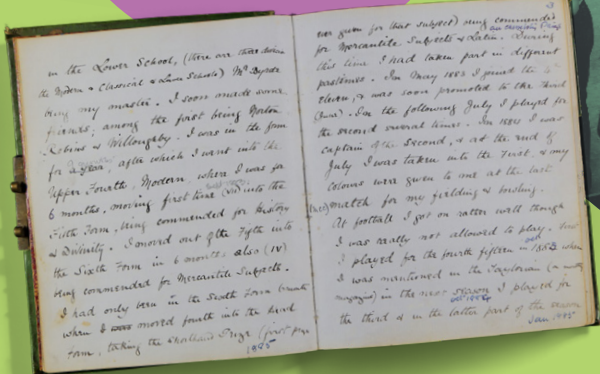 in the Lower School, (there are three divisions
the Modern & Classical & Lower Schools) Mr
being my master. I soon made some
friends; among the first being Norton
Robins & Willoughby. I was in the form
for a year, after which I went into the
Upper Fourth, Modern, where I was for
6 months, moving first time (VII) into the
Fifth Form, being commended for History
& Divinity. I moved out of the Fifth into
the Sixth Form in 6 months also (IV)
being commended for Mercantile Subjects.
I had only been in the Sixth Form
when I moved fourth into the
Form, taking the Shorthand Prize (first prize
1885
3
ever given for that subject) being commended
for Mercantile Subjects & Latin. During
this time I had taken part in different
pastimes. In May 1883 I joined the
eleven, & was soon promoted to the Third
. In the following July I played for
the second several times. In 1884 I was
captain of the Second, & at the end of
July I was taken into the First, & my
colours were given to me at the last
match for my fielding & bowling.
At football I got on rather well though
I was really not allowed to play. First
I played for the fourth fifteen in 1883 when
I was mentioned in the Taylorian (a monthly
magazine) in the next season I played for
Oct 1884
the third & in the latter part of the season
Jan 1885